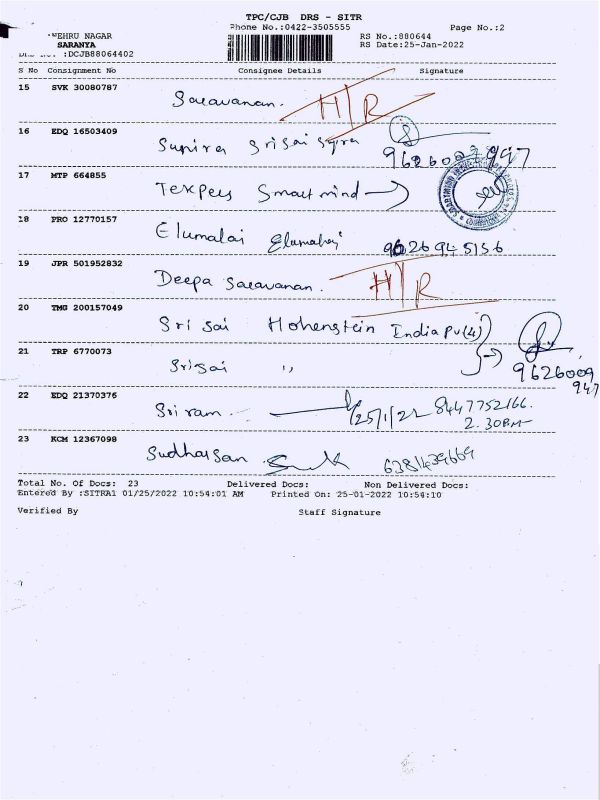 TPC/CJB DRS - SITR
Phone No.:0422-3505555 Page No.:2
NEHRU NAGAR RS No.:880644
SARANYA RS Date:25-Jan-2022
:DCJB88064402
S No Consignment No Consignee Details Signature
15 SVK 30080787 Saravanan. H/R
16 EDQ 16503409
17 MTP 664855 Texpeys Smartmind
18 PRO 12770157 Elumalai Elumalai 9626945156
19 JPR 501952832 Deepa Saravanan. H/R
20 TMG 200157049 Sri Sai Hohenstein India Pv(4)
21 TRP 6770073 Srisai ,, 9626009
947
22 EDQ 21370376 Sriram. 25/1/22 8447752166.
2.30PM
23 KCM 12367098 Sudharsan 6381439669
Total No. Of Docs: 23 Delivered Docs: Non Delivered Docs:
Entered By :SITRA1 01/25/2022 10:54:01 AM Printed On: 25-01-2022 10:54:10
Verified By Staff Signature